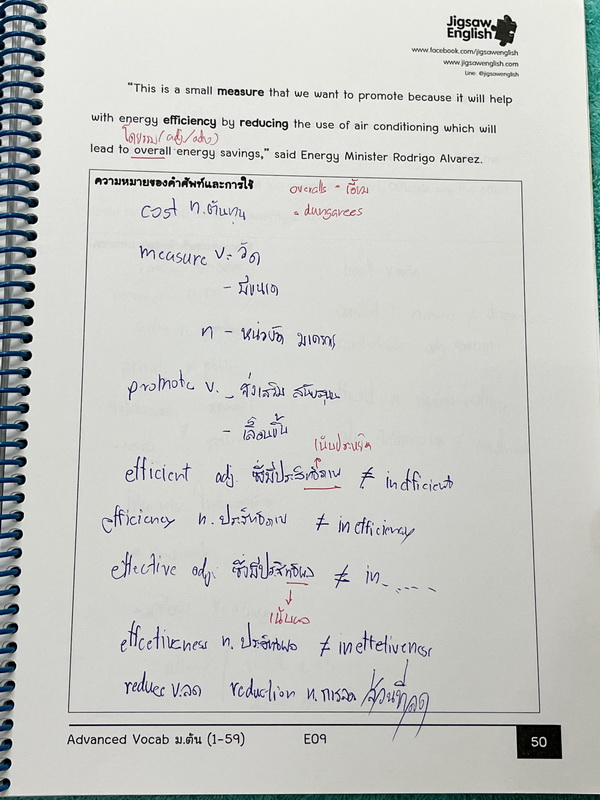 Jigsaw
English
www.facebook.com/jigsawenglish
www.jigsawenglish.com
Line: @jigsawenglish
"This is a small measure that we want to promote because it will help
with energy efficiency by reducing the use of air conditioning which will
โดยรวม (adj/adv)
lead to overall energy savings," said Energy Minister Rodrigo Alvarez.
ความหมายของคำศัพท์และการใช้
overalls = เอี๊ยม
= dungarees
cost n. ต้นทุน
measure v. - วัด
- มีขนาด
n - หน่วยวัด มาตรการ
promote v. - ส่งเสริม สนับสนุน
- เลื่อนขั้น
เน้นประหยัด
efficient adj. ซึ่งมีประสิทธิภาพ ≠ inefficient
efficiency n. ประสิทธิภาพ ≠ inefficiency
effective adj. ซึ่งมีประสิทธิผล ≠ in.....
เน้นผล
effectiveness n. ประสิทธิผล ≠ ineffetiveness
reduce v. ลด reduction n. การลด / ส่วนที่ลด
Advanced Vocab ม.ต้น (1-59) E09 50